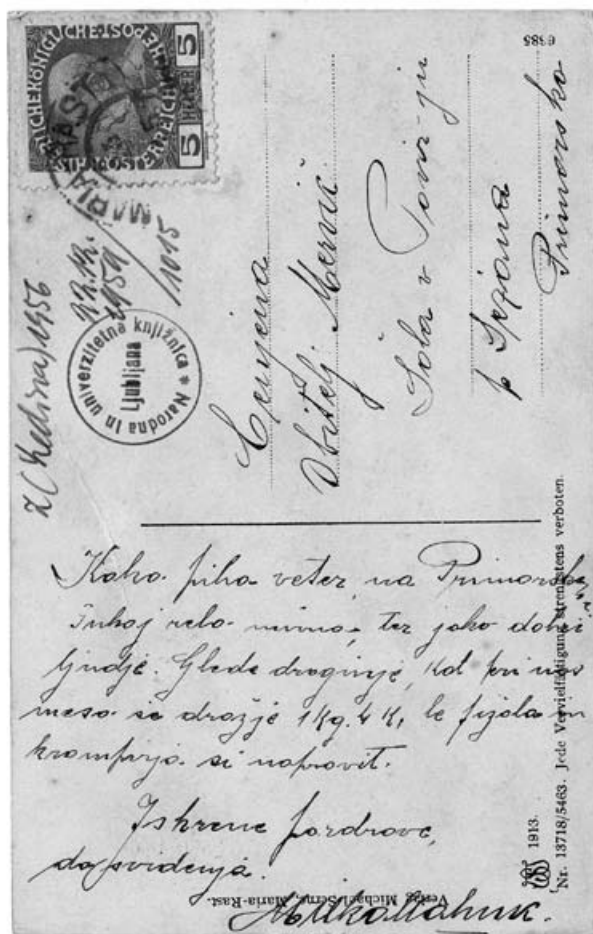 KAISERLICHE KÖNIGLICHE POST
ÖSTERREICH
5 HELLER 5
MARIA RAST
1956
22.12.
1959
/1015
Narodna in univerzitetna knjižnica
Ljubljana
6385
Cenjena
Obitelj Mervič
Šola v Povir-ju
p. Sežana
Primorsko
Kako piha veter na Primorskem
Tukaj zelo mirno, ter jako dobri
ljudje. Glede draginje, kot pri nas
meso še dražje 1 Kg. 4 K, le fižola in
krompirja si napravit.
Iskrene pozdrave,
do svidenja.
Verlag Michael Serne, Maria-Rast.
1913.
Nr. 13718/5463. Jede Vervielfältigung strengstens verboten.